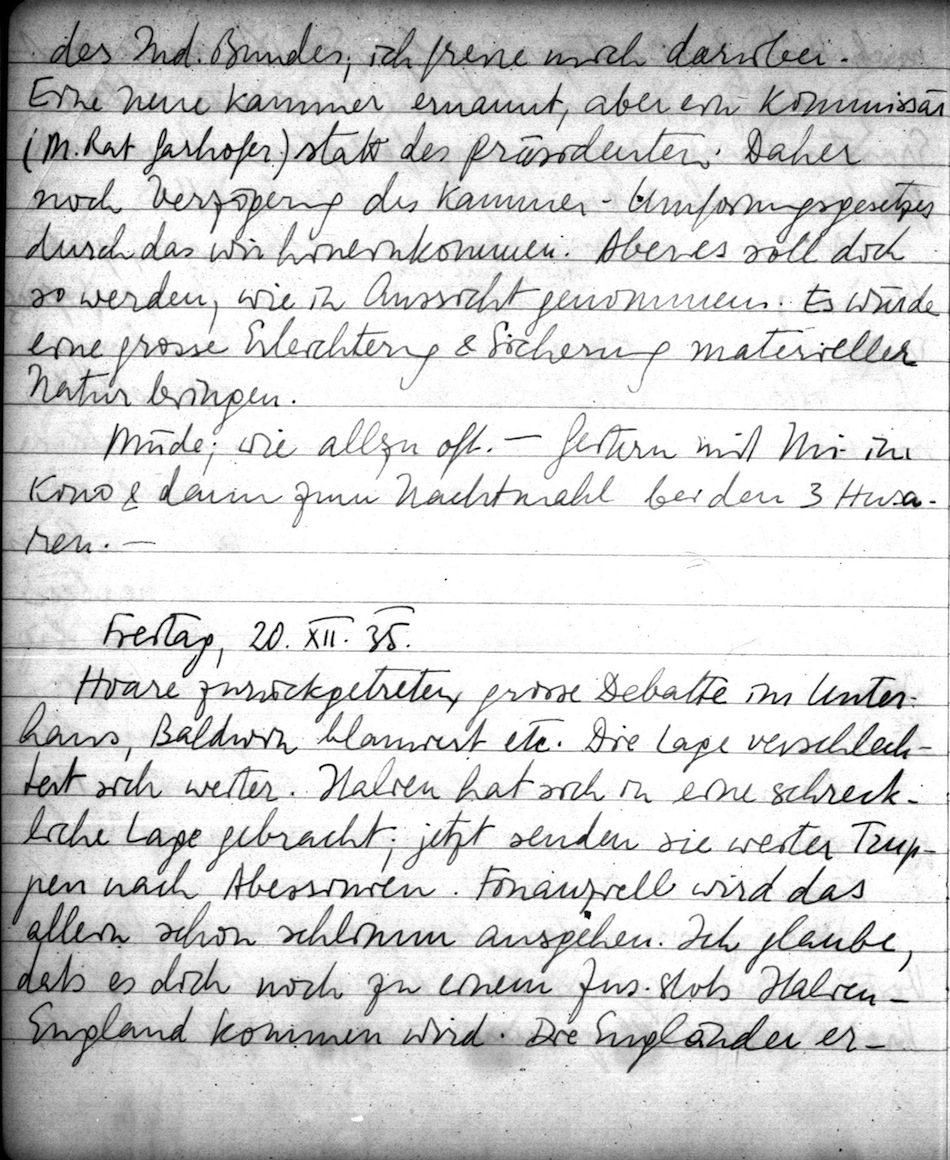 des Ind. Bundes, ich freue mich darüber.
Eine neue Kammer ernannt, aber ein Kommissär
(M. Rat Garhofer) statt des Präsidenten. Daher
noch Verzögerung des Kammer-Umformungsgesetzes
durch das wir hineinkommen. Aber es soll doch
so werden, wie in Aussicht genommen. Es würde
eine grosse Erleichterung & Sicherung materieller
Natur bringen.
Müde, wie allzu oft. — Gestern mit Mi in
Kino & dann zum Nachtmahl bei den 3 Husa-
ren. —
Freitag, 20. XII. 35.
Hoare zurückgetreten, grosse Debatte im Unter-
haus, Baldwin blamiert etc. Die Lage verschlech-
tert sich weiter. Italien hat sich in eine schreck-
liche Lage gebracht; jetzt senden sie weiter Trup-
pen nach Abessinien. Finanziell wird das
allein schon schlimm ausgehen. Ich glaube,
dass es doch noch zu einem Zus.stoss Italien-
England kommen wird. Die Engländer er-